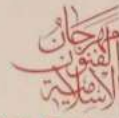 مهرجان
الفنون
الإسلامية